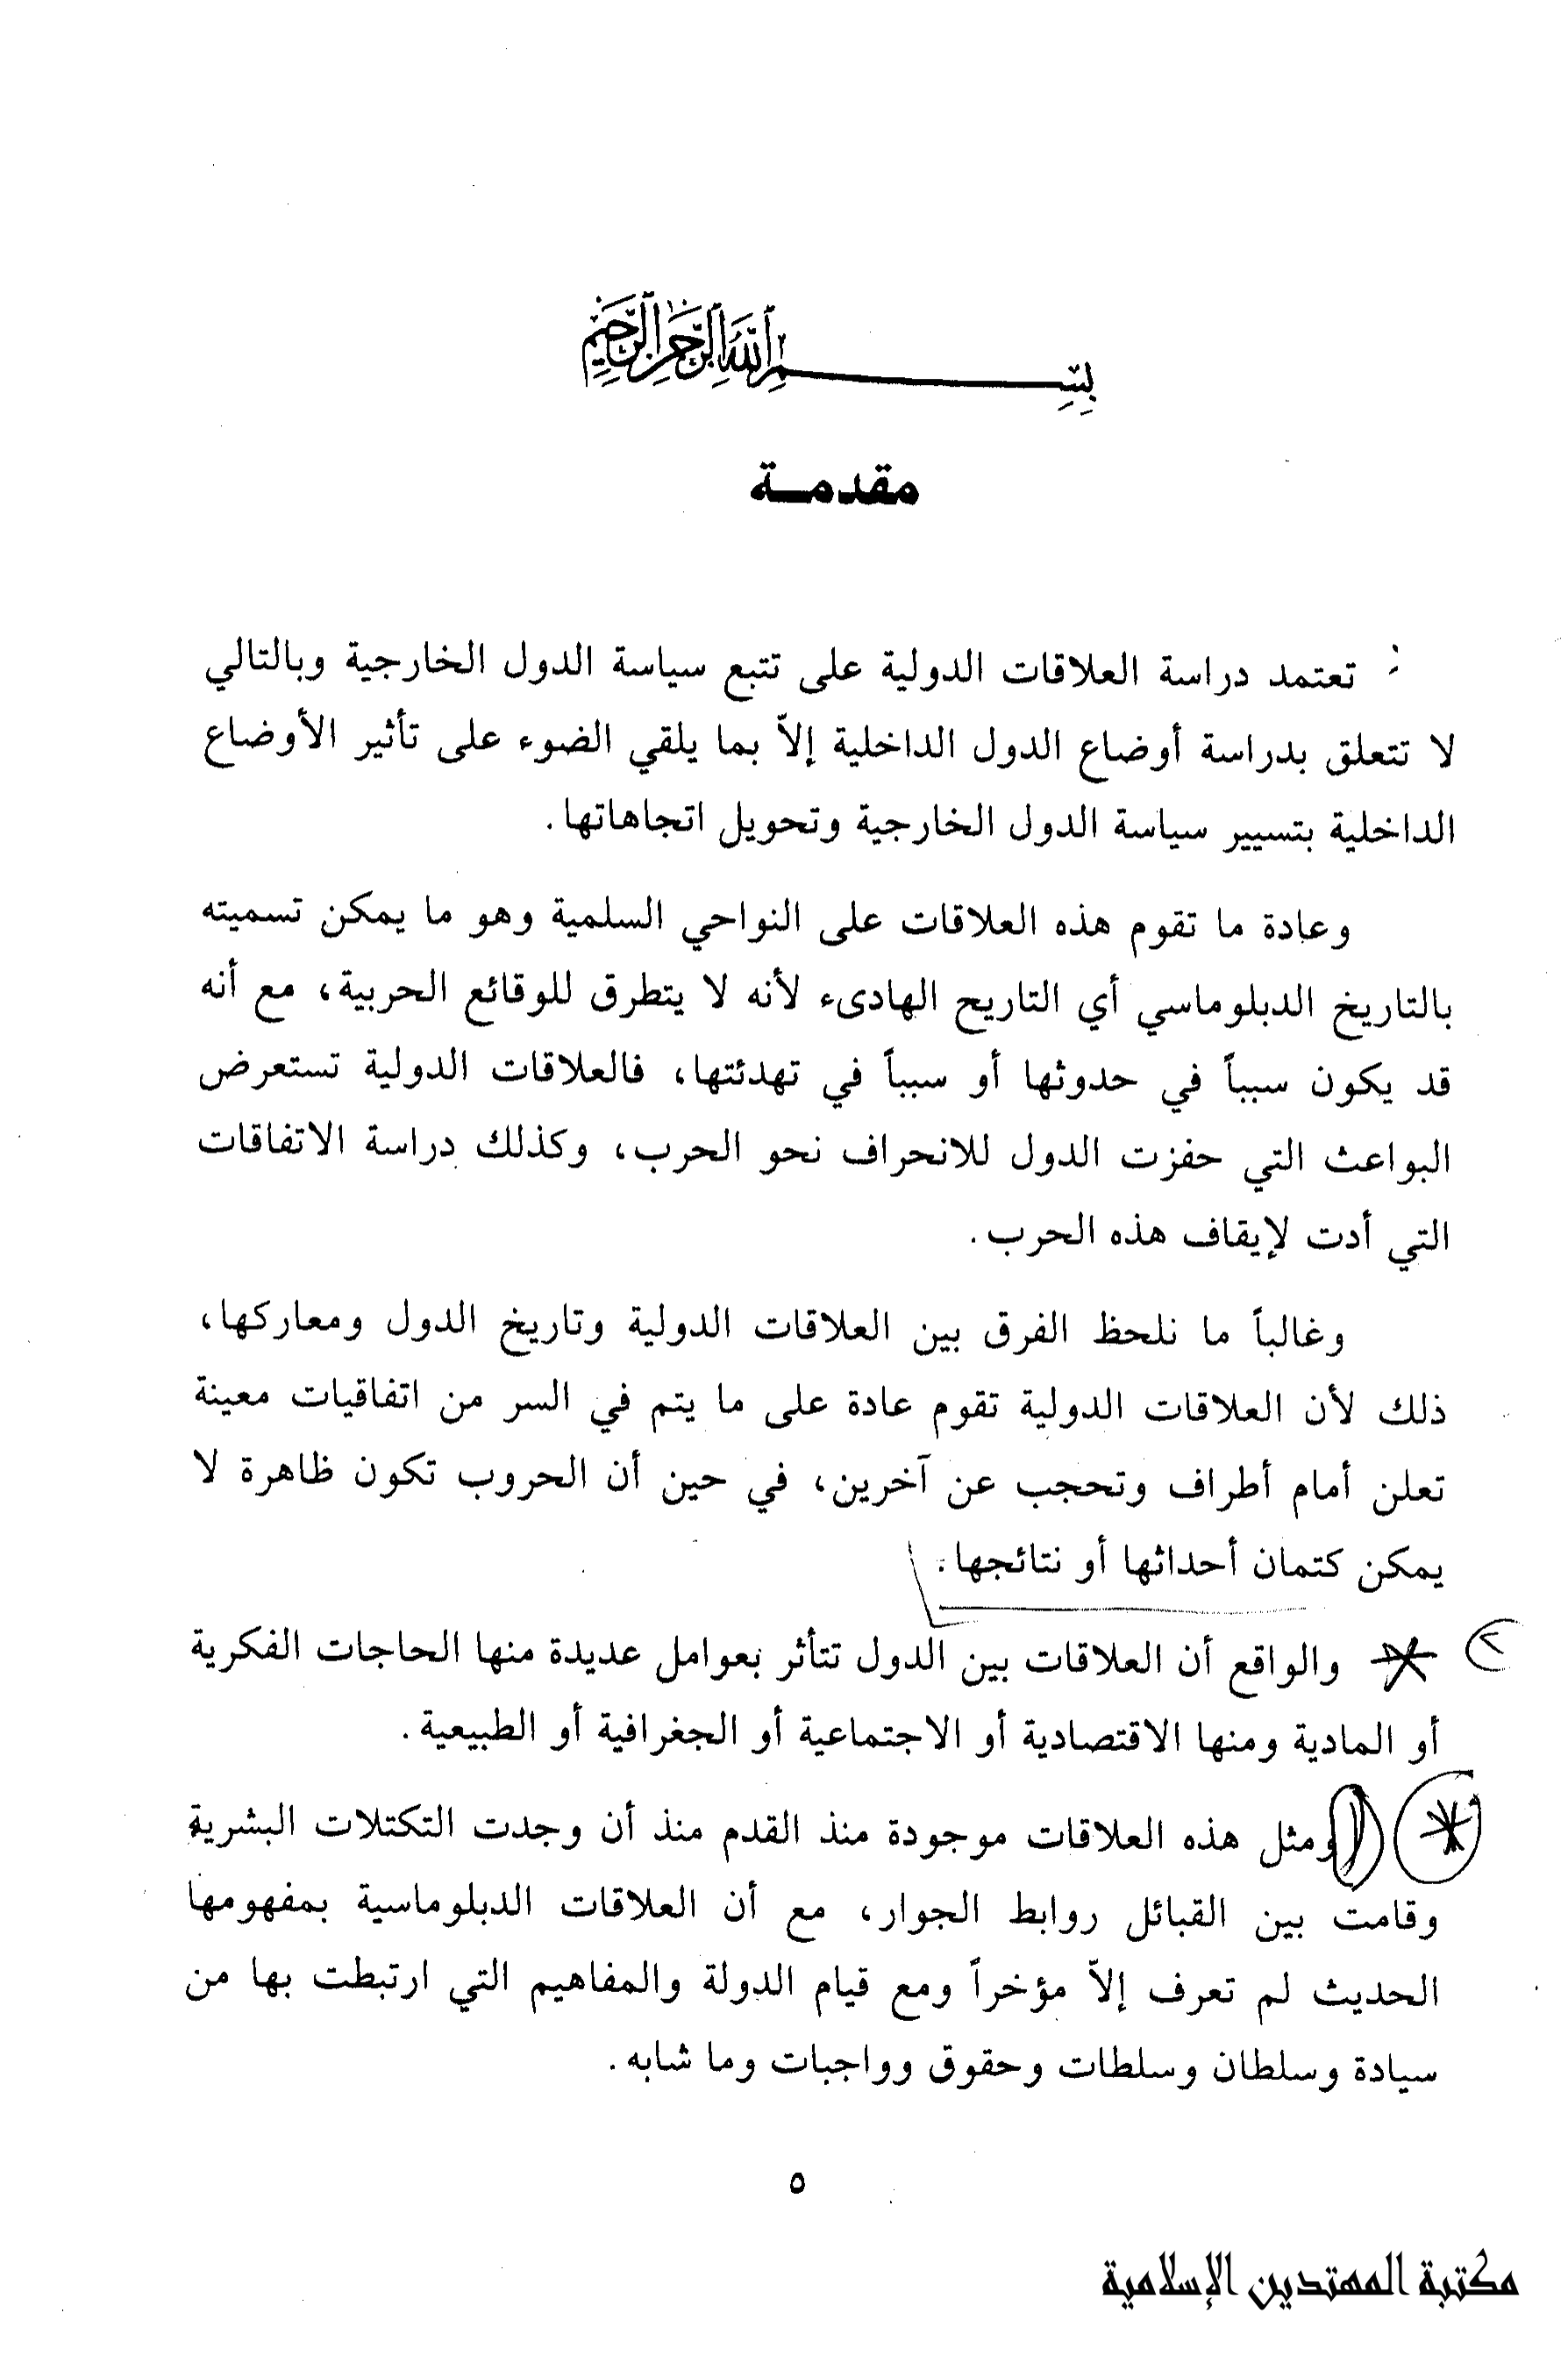 بِسْمِ اللَّهِ الرَّحْمَٰنِ الرَّحِيمِ
مقدمـة
تعتمد دراسة العلاقات الدولية على تتبع سياسة الدول الخارجية وبالتالي
لا تتعلق بدراسة أوضاع الدول الداخلية إلاّ بما يلقي الضوء على تأثير الأوضاع
الداخلية بتسيير سياسة الدول الخارجية وتحويل اتجاهاتها.
وعادة ما تقوم هذه العلاقات على النواحي السلمية وهو ما يمكن تسميته
بالتاريخ الدبلوماسي أي التاريح الهادىء لأنه لا يتطرق للوقائع الحربية، مع أنه
قد يكون سبباً في حدوثها أو سبباً في تهدئتها، فالعلاقات الدولية تستعرض
البواعث التي حفزت الدول للانحراف نحو الحرب، وكذلك دراسة الاتفاقات
التي أدت لإيقاف هذه الحرب.
وغالباً ما نلحظ الفرق بين العلاقات الدولية وتاريخ الدول ومعاركها،
ذلك لأن العلاقات الدولية تقوم عادة على ما يتم في السر من اتفاقيات معينة
تعلن أمام أطراف وتحجب عن آخرين، في حين أن الحروب تكون ظاهرة لا
يمكن كتمان أحداثها أو نتائجها.
والواقع أن العلاقات بين الدول تتأثر بعوامل عديدة منها الحاجات الفكرية
أو المادية ومنها الاقتصادية أو الاجتماعية أو الجغرافية أو الطبيعية.
ومثل هذه العلاقات موجودة منذ القدم منذ أن وجدت التكتلات البشرية
وقامت بين القبائل روابط الجوار، مع أن العلاقات الدبلوماسية بمفهومها
الحديث لم تعرف إلاّ مؤخراً ومع قيام الدولة والمفاهيم التي ارتبطت بها من
سيادة وسلطان وسلطات وحقوق وواجبات وما شابه.
٥
مكتبة المهتدين الإسلامية